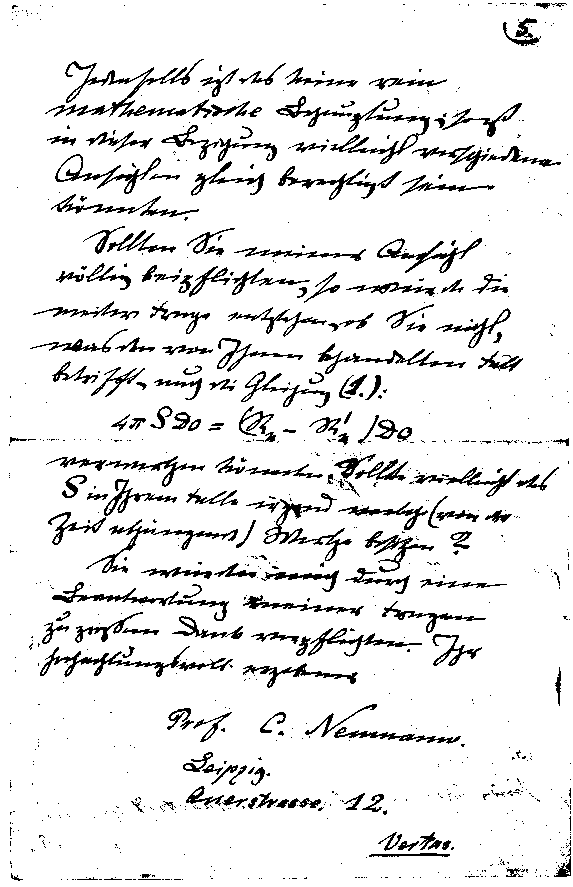 5.
Jedenfalls ist das keine rein
mathematische Behauptung; so daß
in dieser Beziehung vielleicht verschiedene
Ansichten gleich berechtigt sein
könnten.
Sollten Sie meiner Ansicht
völlig beipflichten, so würde die
weitere Frage entstehen, ob Sie nicht,
was den von Ihnen behandelten Fall
betrifft, auch die Gleichung (1.):
4π S Do = (R_n − R'_n) Do
verwerthen könnten. Sollte vielleicht das
S in Ihrem Falle irgend welche (von der
Zeit abhängende) Werthe besitzen?
Sie würden mich durch eine
Beantwortung meiner Fragen
zu großem Dank verpflichten. Ihr
hochachtungsvoll ergebener
Prof. C. Neumann.
Leipzig.
Querstrasse, 12.